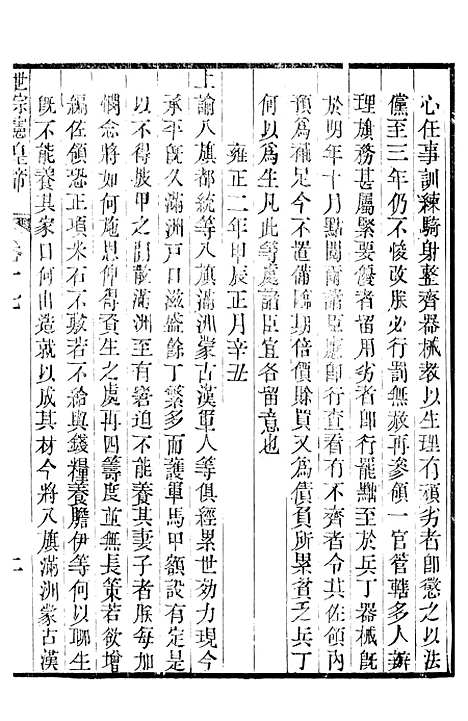 心任事訓練騎身整齊器械教以生理有頑劣者即懲之以法
儻至三年仍不悛改朕必行罰無赦再參領一官管轄多人辦
理旗務甚屬緊要優者留用劣者即行罷黜至於兵丁器械旣
於明年十月點閱爾諸臣應即行查看有不齊者令其佐領內
預爲補足今不置備臨期倍價賒買又爲債負所累貧乏兵丁
何以爲生凡此等處諸臣宜各留意也
雍正二年甲辰正月辛丑
上諭八旗都統等八旗滿洲蒙古漢軍人等俱經累世効力現今
承平旣久滿洲戶口滋盛餘丁繁多而護軍馬甲額設有定是
以不得披甲之閒散滿洲至有窘迫不能養其妻子者朕每加
憫念將如何施恩俾得資生之處再四籌度並無長策若欲增
編佐領恐正項米石不敷若不給與錢糧養贍伊等何以聊生
旣不能養其家口何由造就以成其材今將八旗滿洲蒙古漢
世宗憲皇帝 卷十七 二